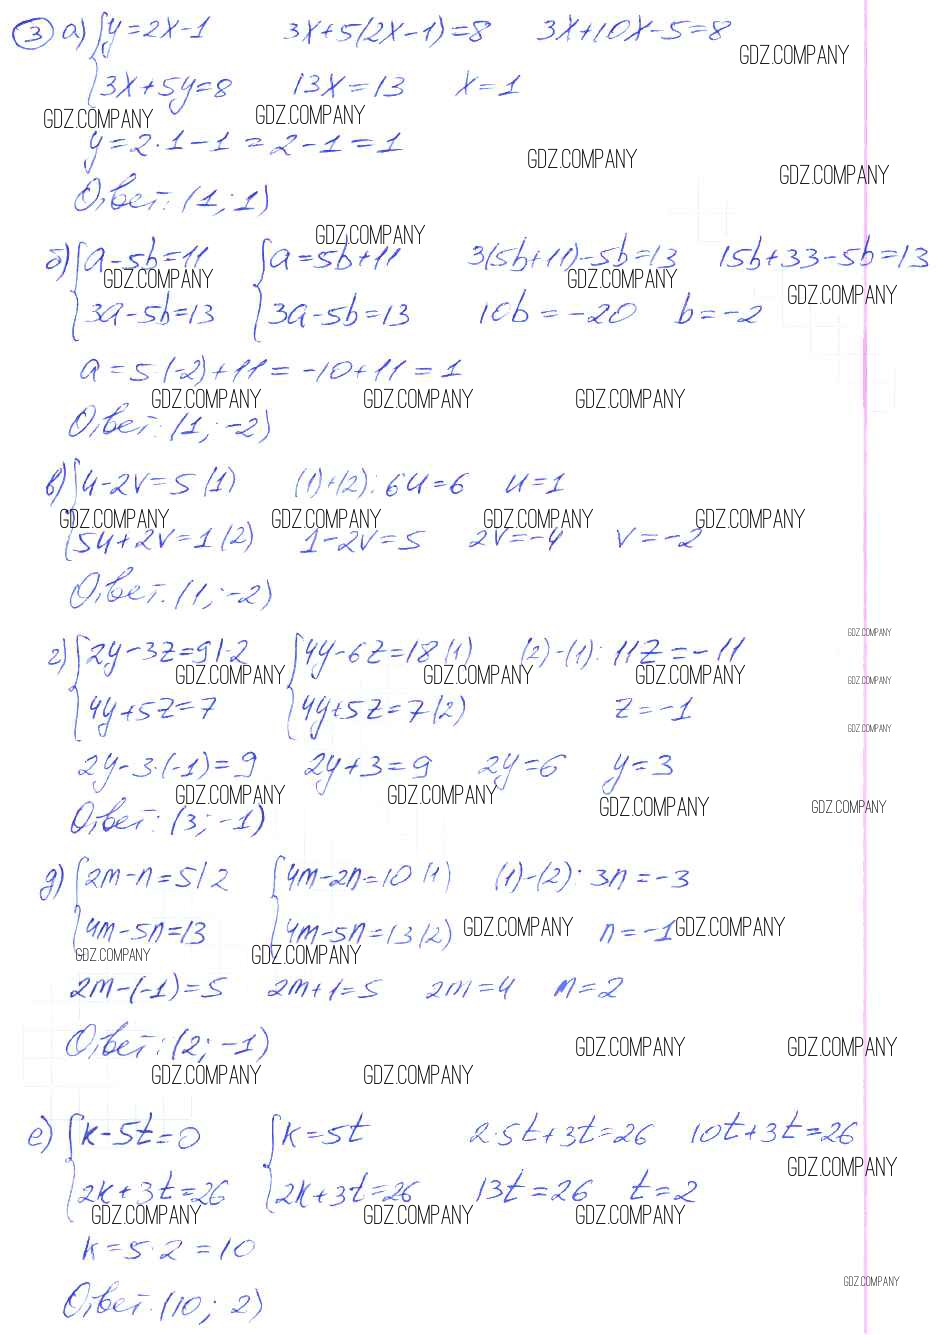 3 а) { y=2x-1 3x+5(2x-1)=8 3x+10x-5=8
GDZ.COMPANY
3x+5y=8 13x=13 x=1
GDZ.COMPANY GDZ.COMPANY
y=2·1-1=2-1=1
GDZ.COMPANY
GDZ.COMPANY
Ответ: (1; 1)
GDZ.COMPANY
б) { a-5b=11 { a=5b+11 3(5b+11)-5b=13 15b+33-5b=13
GDZ.COMPANY GDZ.COMPANY
GDZ.COMPANY
3a-5b=13 3a-5b=13 10b=-20 b=-2
a=5·(-2)+11=-10+11=1
GDZ.COMPANY GDZ.COMPANY GDZ.COMPANY
Ответ: (1; -2)
в) { u-2v=5 (1) (1)+(2): 6u=6 u=1
GDZ.COMPANY GDZ.COMPANY GDZ.COMPANY GDZ.COMPANY
5u+2v=1 (2) 1-2v=5 2v=-4 v=-2
Ответ: (1; -2)
GDZ.COMPANY
г) { 2y-3z=9|·2 { 4y-6z=18 (1) (2)-(1): 11z=-11
GDZ.COMPANY GDZ.COMPANY GDZ.COMPANY GDZ.COMPANY
4y+5z=7 4y+5z=7 (2) z=-1
GDZ.COMPANY
2y-3·(-1)=9 2y+3=9 2y=6 y=3
GDZ.COMPANY GDZ.COMPANY GDZ.COMPANY GDZ.COMPANY
Ответ: (3; -1)
д) { 2m-n=5|·2 { 4m-2n=10 (1) (1)-(2): 3n=-3
4m-5n=13 4m-5n=13 (2) GDZ.COMPANY n=-1 GDZ.COMPANY
GDZ.COMPANY GDZ.COMPANY
2m-(-1)=5 2m+1=5 2m=4 m=2
Ответ: (2; -1)
GDZ.COMPANY GDZ.COMPANY
GDZ.COMPANY GDZ.COMPANY
е) { k-5t=0 { k=5t 2·5t+3t=26 10t+3t=26
GDZ.COMPANY
2k+3t=26 2k+3t=26 13t=26 t=2
GDZ.COMPANY GDZ.COMPANY GDZ.COMPANY
k=5·2=10
GDZ.COMPANY
Ответ: (10; 2)